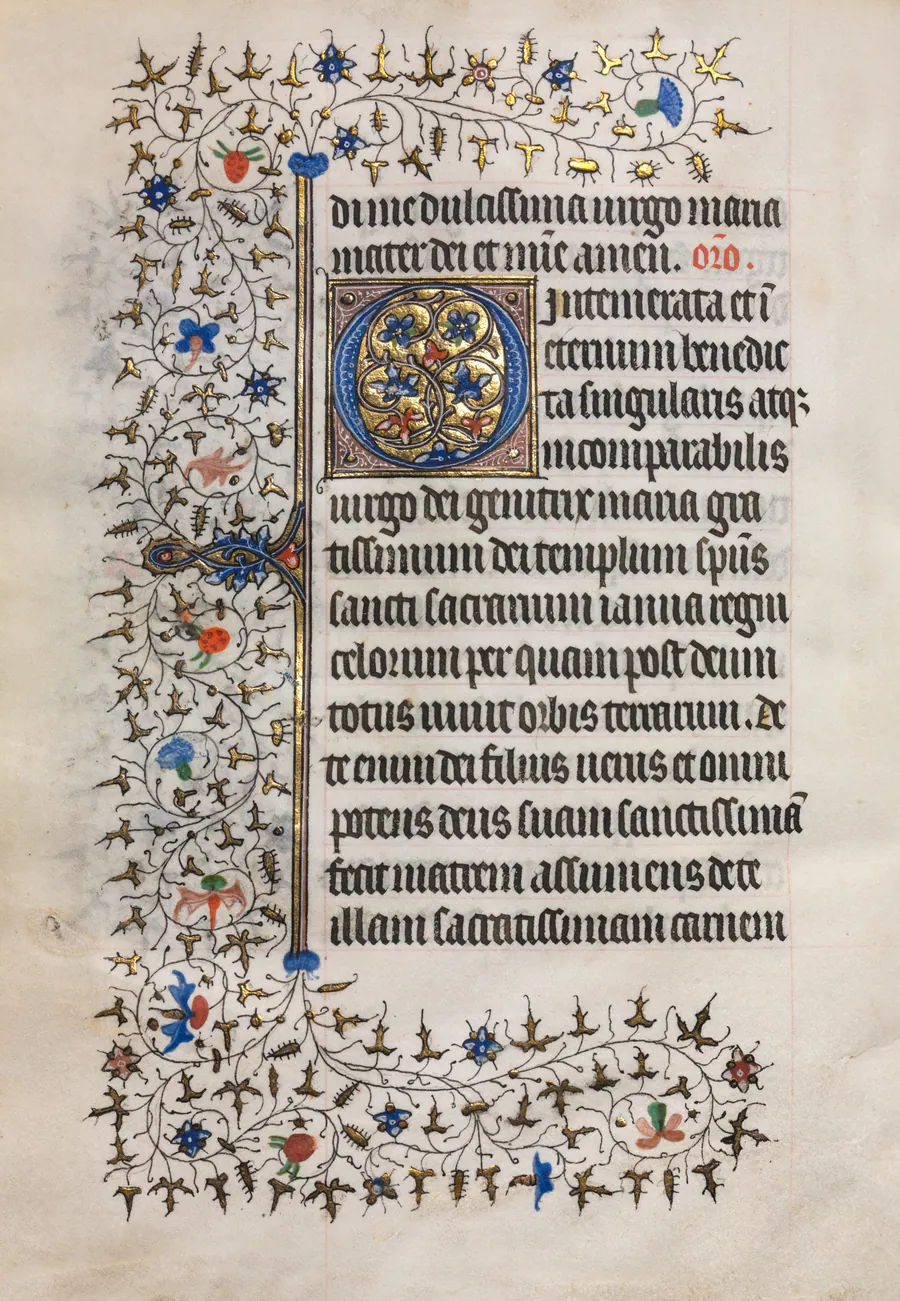 di me dulcissima uirgo maria
mater dei et mīe amen. orō.
O Intemerata et ī
eternum benedic
ta singularis atqꝫ
incomparabilis
uirgo dei genitrix maria gra
tissimum dei templum spūs
sancti sacrarium ianua regni
celorum per quam post deum
totus uiuit orbis terrarum. De
te enim dei filius uerus et omni
potens deus suam sanctissimā
fecit matrem assumens de te
illam sacratissimam carnem